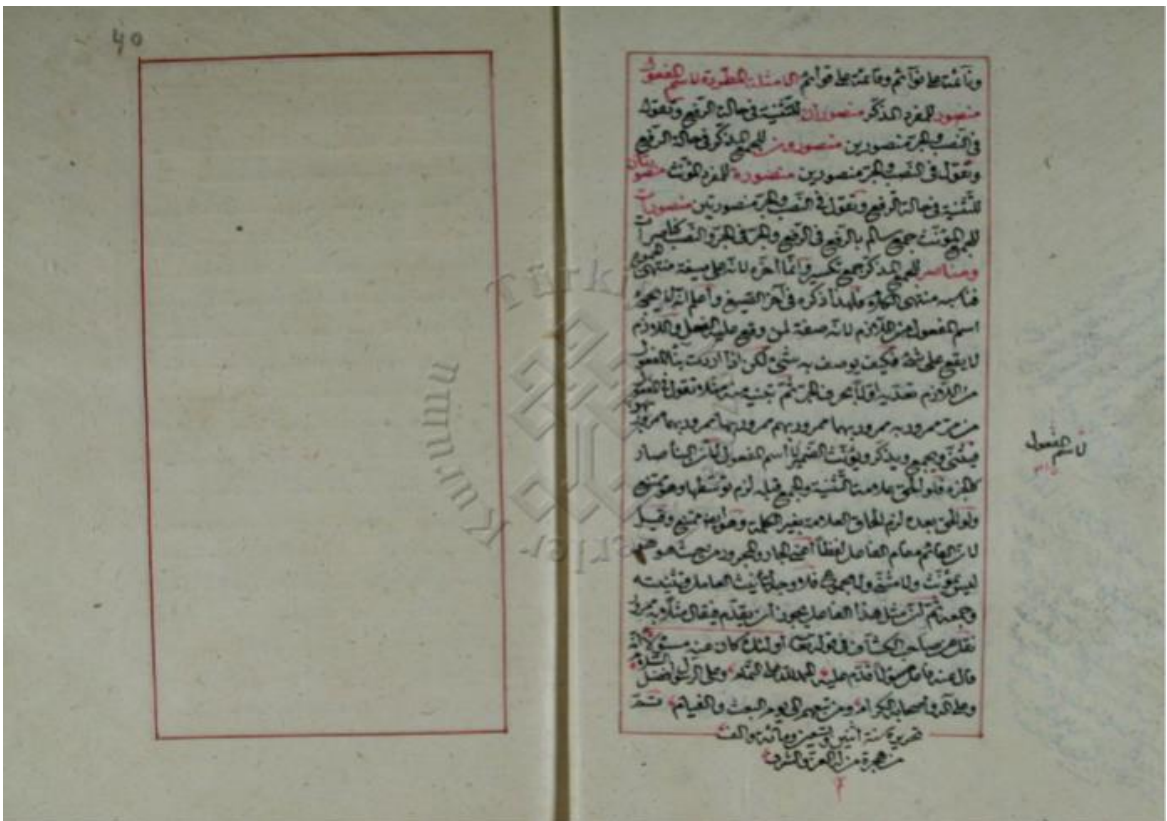 40
الأمثلة المطردة لاسم المفعول
منصور للمفرد المذكر منصوران للتثنية في حالة الرفع وتقول
في النصب والجر منصورين منصورون للجمع المذكر في حالة الرفع
وتقول في النصب والجر منصورين منصورة للمفرد المؤنث منصورتان
للتثنية في حالة الرفع وتقول في النصب والجر منصورتين منصورات
للجمع المؤنث جمع سالم بالرفع في الرفع والجر في الجر والنصب
ومناصر للجمع المذكر جمع تكسير وإنما أخره لأنه على صيغة منتهى الجموع
فلهذا ذكره في آخر الصيغ واعلم أنه لا يجئ
اسم المفعول من اللازم لأنه صفة لمن وقع عليه الفعل واللازم
لا يقع على شئ فكيف يوصف به شئ لكن إذا أردت بناء المفعول
من اللازم تعديه أولا بحرف الجر ثم تبنيه منه مثلا تقول
من مر ممرور به ممرور بهما ممرور بهم ممرور بها ممرور بهما ممرور بهن
فيثنى ويجمع ويذكر ويؤنث الضمير لا اسم المفعول لأن الجار صار
كالجزء فلو ألحق علامة التثنية والجمع قبله لزم توسطها وهو ممتنع
ولو ألحق بعده لزم إلحاق العلامة بغير الكلمة وهو أيضا ممتنع وقيل
لأن القائم مقام الفاعل لفظا أعني الجار والمجرور من حيث هو هو
ليس بمؤنث ولا مثنى ولا مجموع فلا وجه لتأنيث العامل وتثنيته
وجمعه ثم إن مثل هذا الفاعل يجوز أن يقدم فيقال مثلا به ممرور
نقل عن صاحب الكشاف في قوله تعالى أولئك كان عنه مسؤولا أنه
قال عنه فاعل مسؤولا قدم عليه الحمد لله على التمام وعلى الرسول أفضل السلام
وعلى آله وأصحابه الكرام ومن تبعهم إلى يوم البعث والقيام
سنة اثنين وتسعين ومائة وألف
من هجرة من له العز والشرف
م
لاسم المفعول